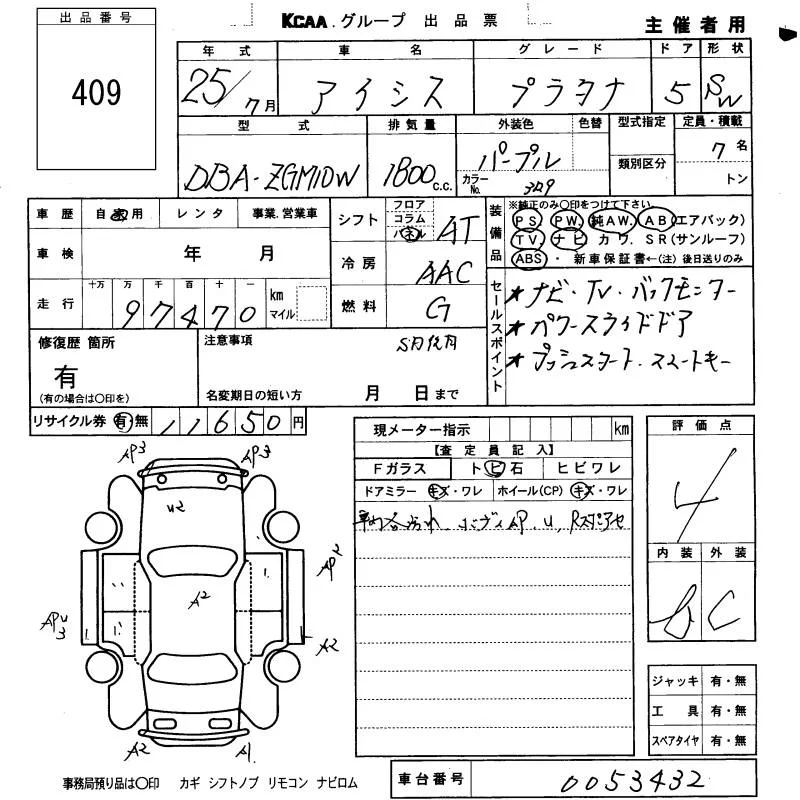 出品番号
409
KCAA.グループ 出品票
主催者用
年式 車名 グレード ドア 形状
25/7月 アイシス プラタナ 5 SW
型式 排気量 外装色 色替 型式指定 定員・積載
DBA-ZGM10W 1800c.c. パープル 類別区分 7名
カラーNo. 3H9 トン
車歴 自家用 レンタ 事業.営業車
シフト フロア コラム パネル AT
車検 年 月
冷房 AAC
走行 十万 万 千 百 十 一
97470 km マイル
燃料 G
装備品 ※純正のみ〇印をつけて下さい。
PS PW 純AW. AB(エアバック)
TV. ナビ カワ. SR(サンルーフ)
ABS ・ 新車保証書←(注)後日送りのみ
セールスポイント
★ナビ・TV・バックモニター
★パワースライドドア
★プッシュスタート.スマートキー
修復歴 箇所
有
(有の場合は〇印を)
注意事項
名変期日の短い方 月 日まで
リサイクル券 有 無 11650円
現メーター指示 km
【査定員記入】
Fガラス トビ石 ヒビワレ
ドアミラー キズ・ワレ ホイール(CP) キズ・ワレ
評価点
4
内装 外装
B C
AP3 AP3
U2
A2
AP2
APU3
A2
A2 A1
ジャッキ 有・無
工具 有・無
スペアタイヤ 有・無
事務局預り品は〇印 カギ シフトノブ リモコン ナビロム
車台番号 0053432